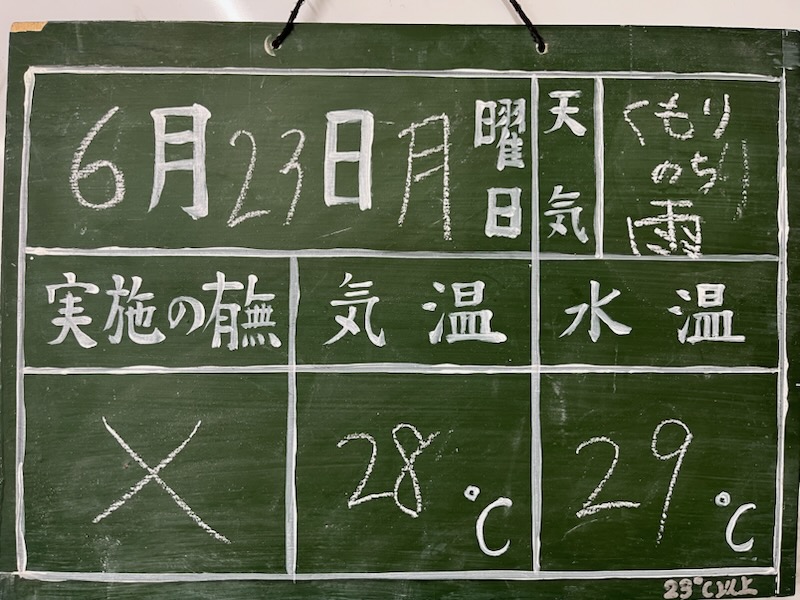 6月23日月曜日 天気 くもりのち雨
実施の有無 気温 水温
× 28℃ 29℃
23℃以上